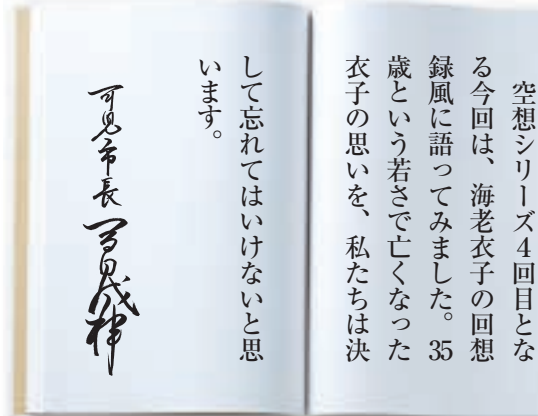 空想シリーズ4回目とな
る今回は、海老衣子の回想
録風に語ってみました。35
歳という若さで亡くなった
衣子の思いを、私たちは決
して忘れてはいけないと思
います。
可児市長